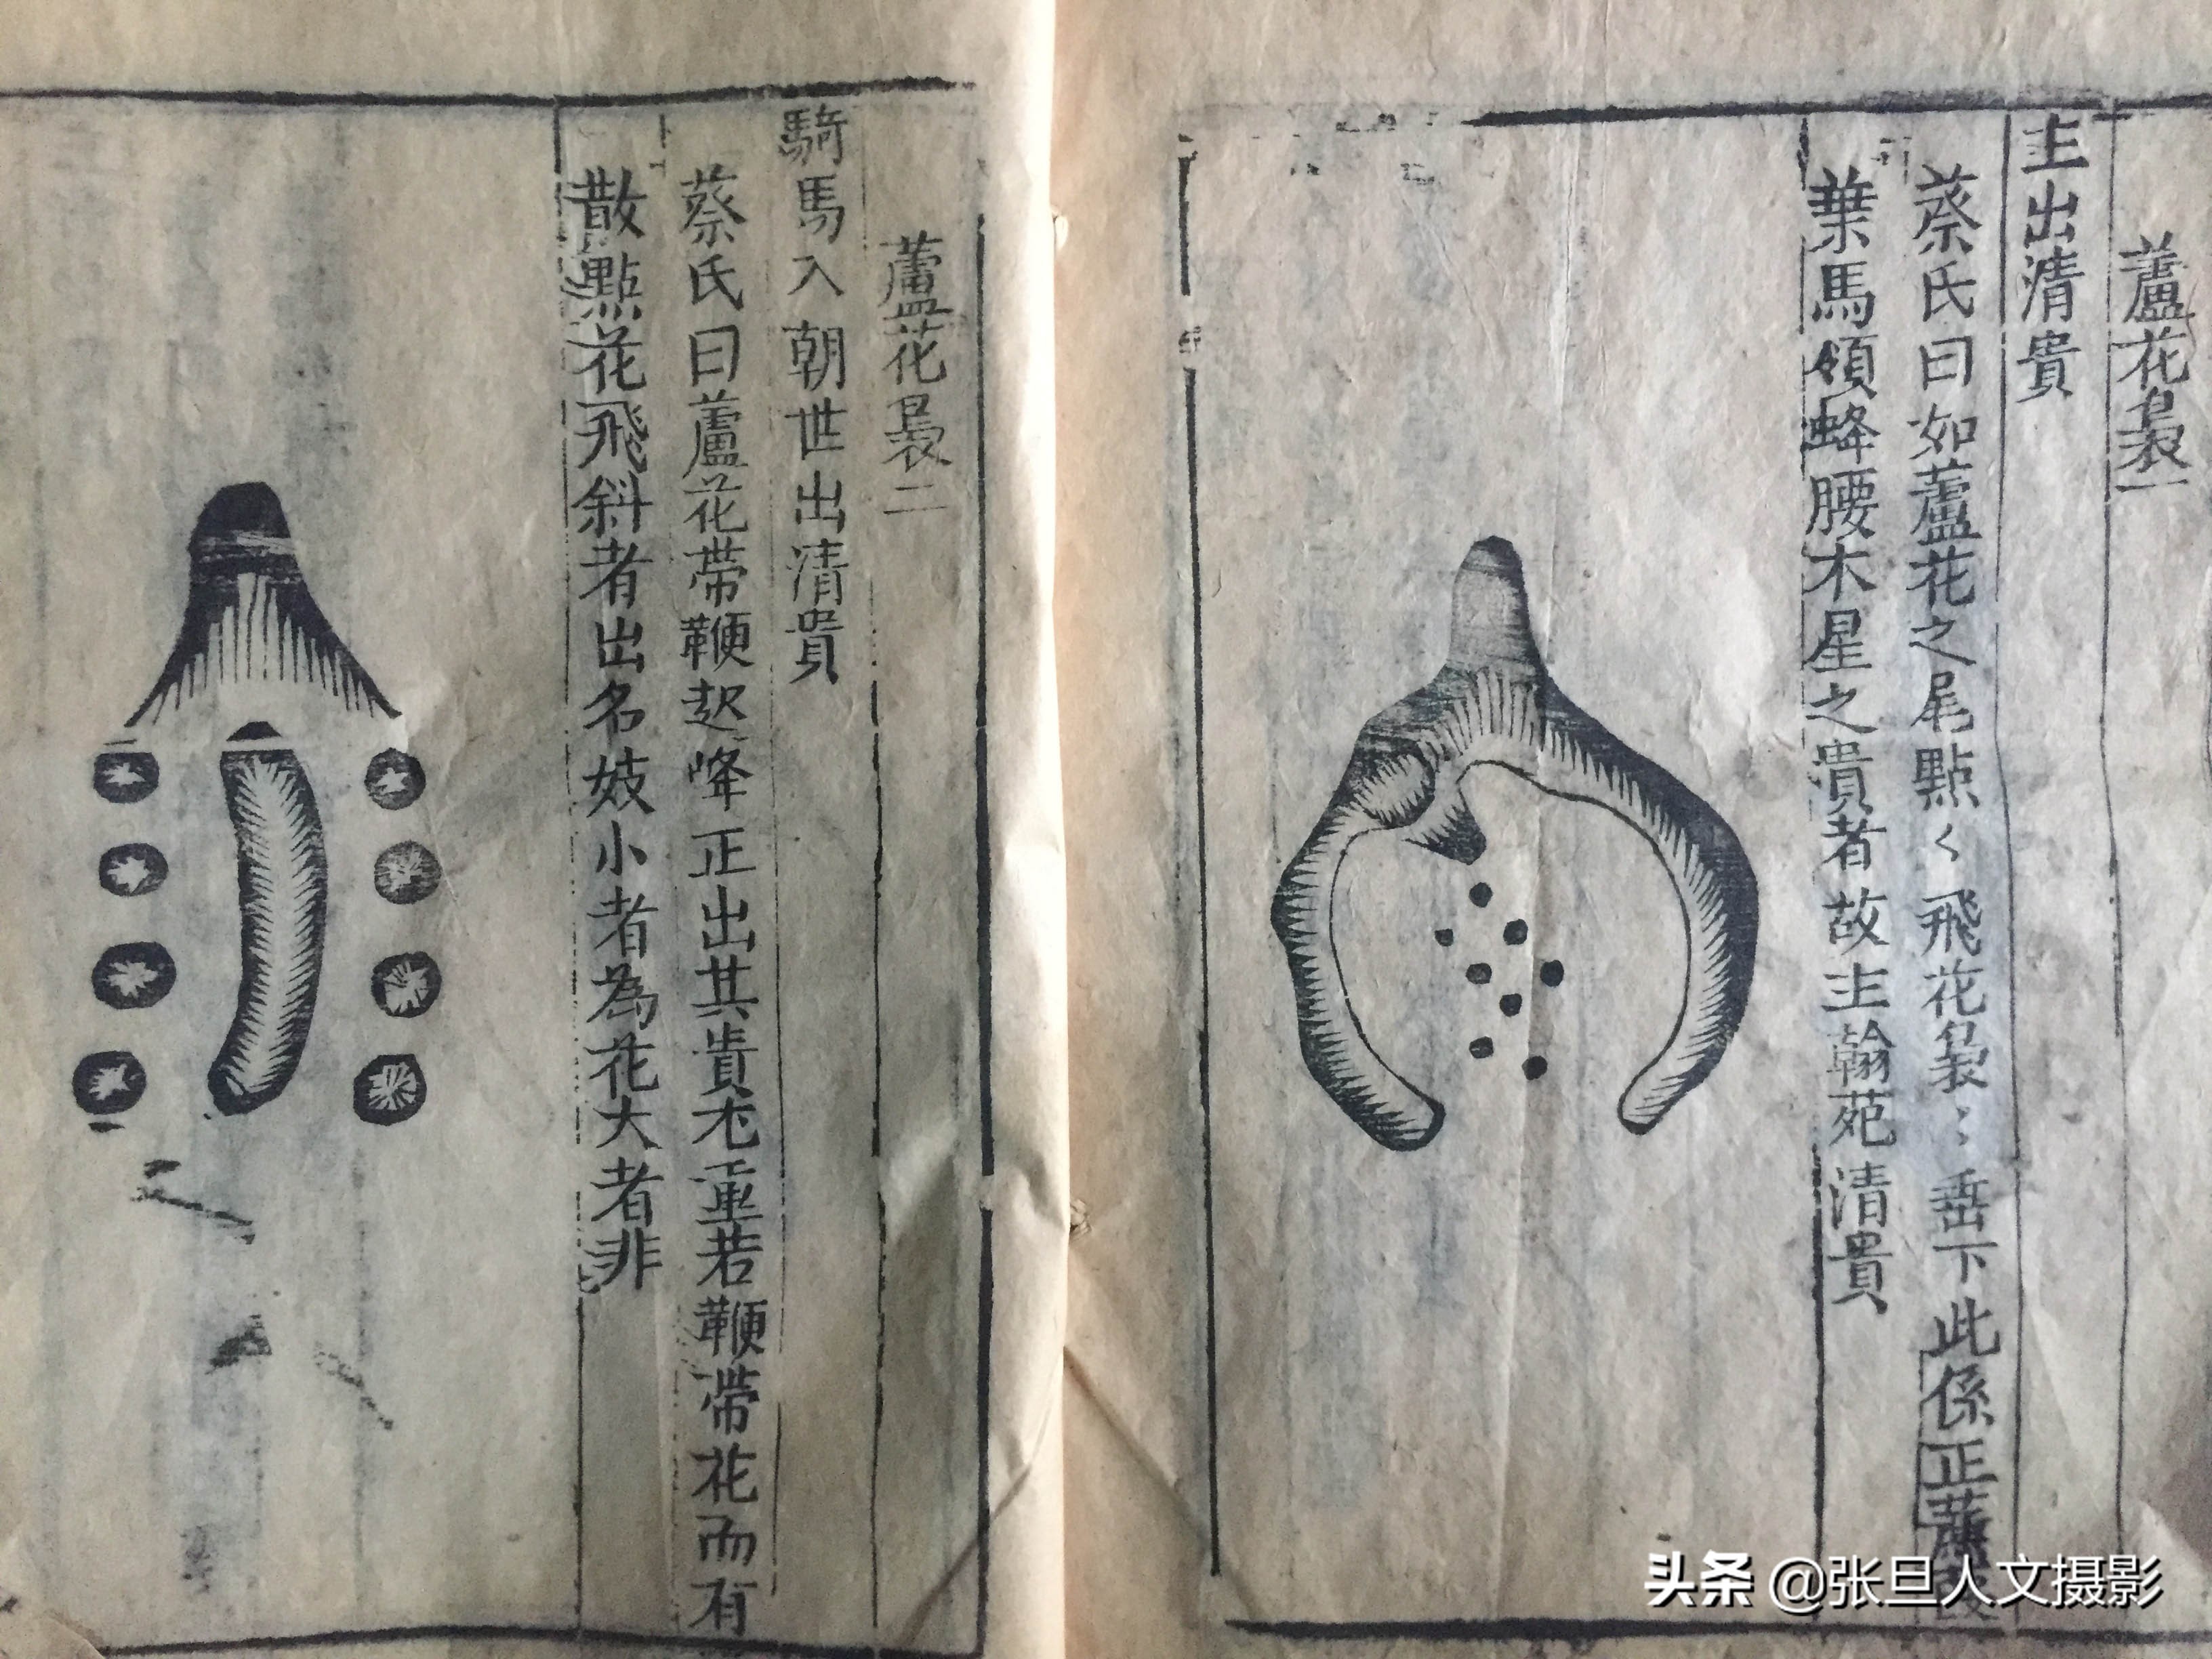 蘆花裊一
主出清貴
蔡氏曰如蘆花之尾點〻飛花裊〻垂下此係正蘆
葉馬領蜂腰木星之貴者故主翰苑清貴
蘆花裊二
騎馬入朝世出清貴
蔡氏曰蘆花帶鞭起峰正出其貴尤重若鞭帶花而有
散點花飛斜者出名妓小者為花大者非
头条 @张旦人文摄影